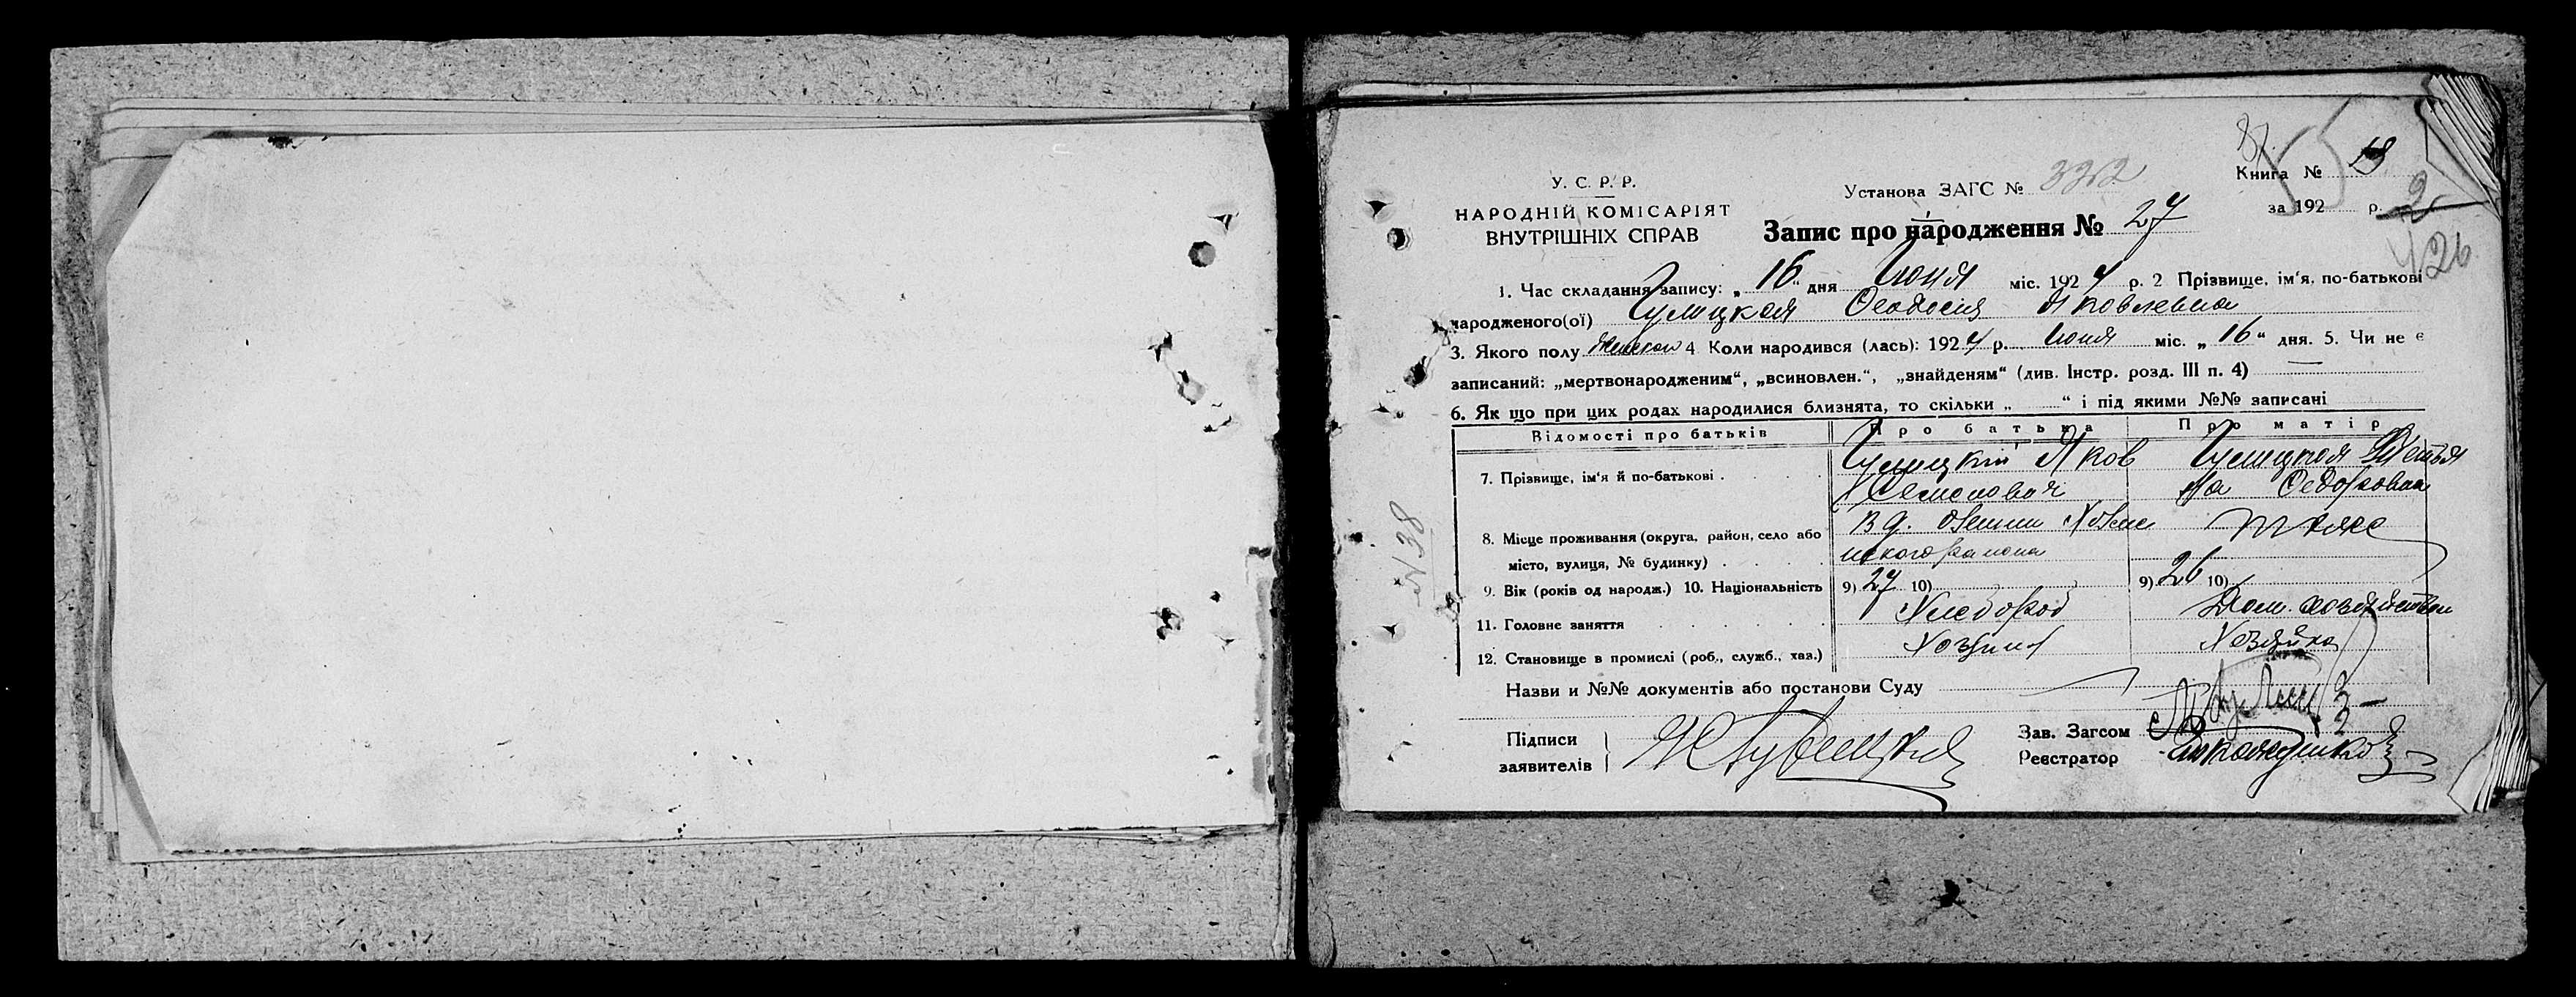 87
Книга № 13
У. С. Р. Р.
Установа ЗАГС № 332
НАРОДНІЙ КОМІСАРІЯТ
за 192 р.
ВНУТРІШНІХ СПРАВ
Запис про народження № 27
426
1. Час складання запису: „16“ дня Июня міс. 1924 р. 2 Прізвище, ім'я, по-батькові
народженого(ої) Феодосия Яковлевна
3. Якого полу женскою 4 Коли народився (лась): 1924 р. Июня міс. „16“ дня. 5. Чи не є
записаний: „мертвонародженим“, „всиновлен.“, „знайденям“ (див. Інстр. розд. III п. 4) —
6. Як що при цих родах народилися близнята, то скільки „ “ і під якими №№ записані
Відомості про батьків Про батька Про матір
7. Прізвище, ім'я й по-батькові . Яков
Семенович на Федоровна
8. Місце проживання (округа, район, село або В д.
місто, вулиця, № будинку) . ского района
9. Вік (років од народж.) 10. Національність 9) 27 10) 9) 26 10)
11. Головне заняття Хлебороб Дом. хозяйство
12. Становище в промислі (роб., служб., хаз.) Хозяин Хозяйка
№38
Назви и №№ документів або постанови Суду
Підписи
заявителів
Зав. Загсом
Реєстратор